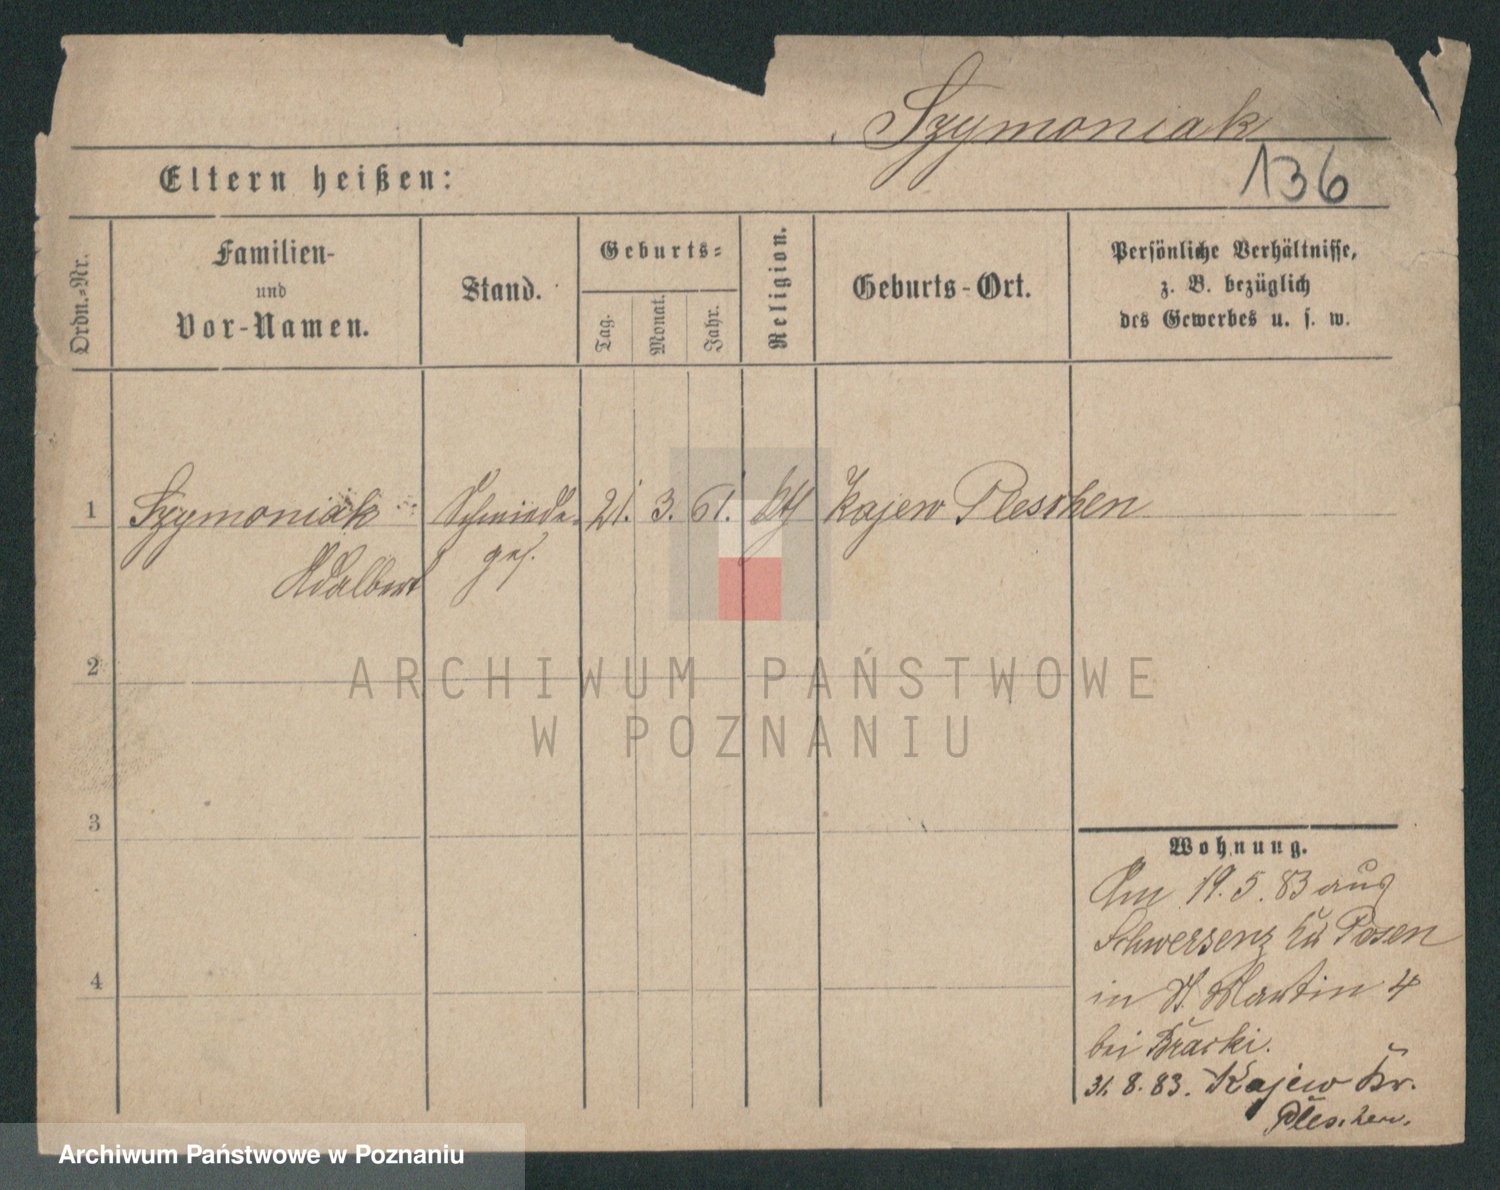 Szymoniak
136
Eltern heißen:
Ordn.-Nr.
Familien-
und
Vor-Namen.
Stand.
Geburts-
Tag.
Monat.
Jahr.
Religion.
Geburts-Ort.
Persönliche Verhältnisse,
z. B. bezüglich
des Gewerbes u. s. w.
1 Szymoniak Schmiede- 21. 3. 61. kth Kajew Pleschen
Adalbert ges.
2
3
4
ARCHIWUM PAŃSTWOWE
W POZNANIU
Wohnung.
Am 19.5.83 aus
Schwersenz zu Posen
in St Martin 4
bei
31. 8. 83. Kajew Kr.
Pleschen.
Archiwum Państwowe w Poznaniu